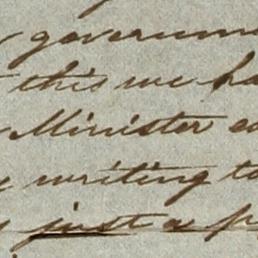 governm
this we ha
Minister
writing to
just a p